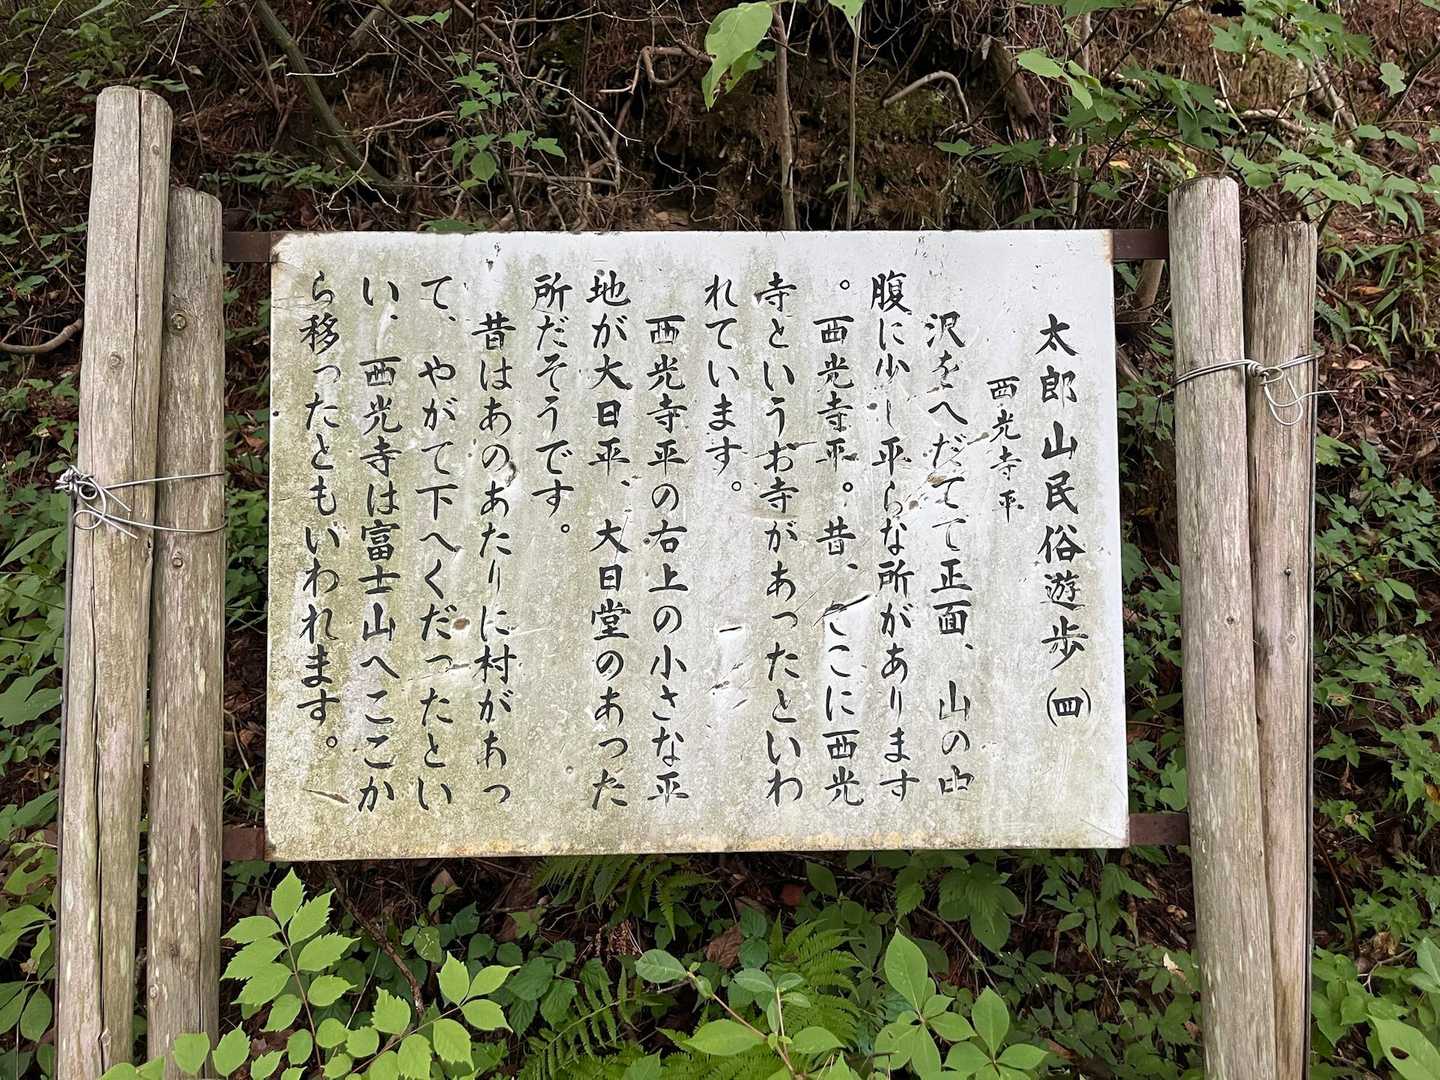 太郎山民俗遊歩(四)
西光寺平
沢をへだてて正面、山の中
腹に少し平らな所があります
。西光寺平。昔、ここに西光
寺というお寺があったといわ
れています。
西光寺平の右上の小さな平
地が大日平、大日堂のあった
所だそうです。
昔はあのあたりに村があっ
て、やがて下へくだったとい
い、西光寺は富士山へここか
ら移ったともいわれます。